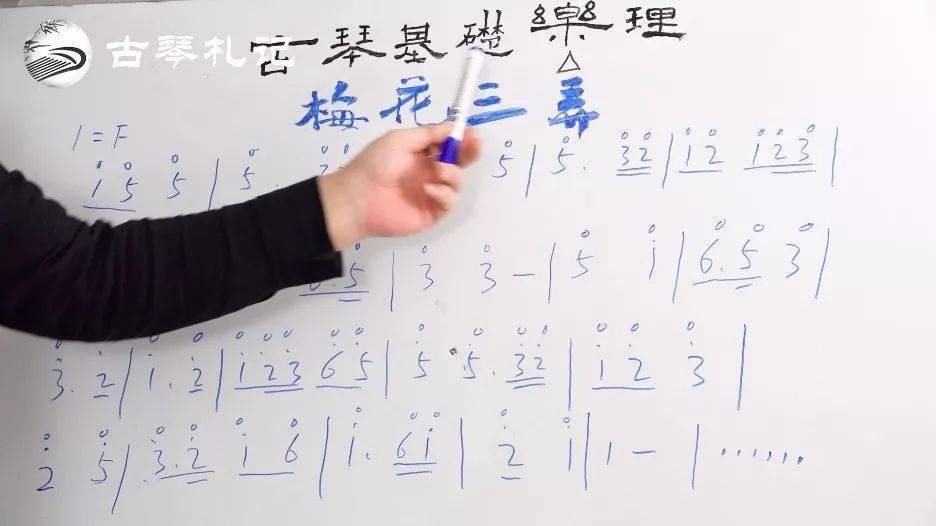 古琴札记
古琴基礎樂理
梅花三弄
1=F
1 5 5 | 5 . 5 | 5 . 3 2 | 1 2 1 2 3 |
6.5 | 3 3 - | 5 i | 6.5 3 |
3. 2 | 1. 2 | 1 2 3 6 5 | 5 5. 3 2 | 1 2 3 |
2 5 | 3.2 i 6 | i. 6 i | 2 i | 1 - | ······